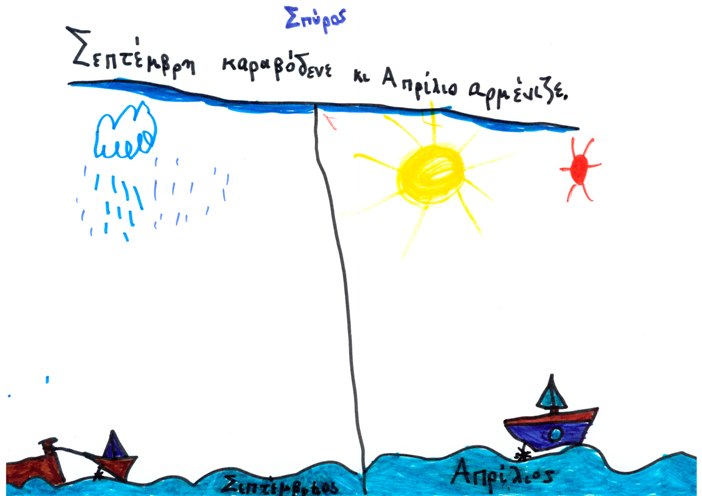 Σπύρος
Σεπτέμβρη καραβόδενε κι Απρίλιο αρμένιζε.
Σεπτέμβριος Απρίλιος